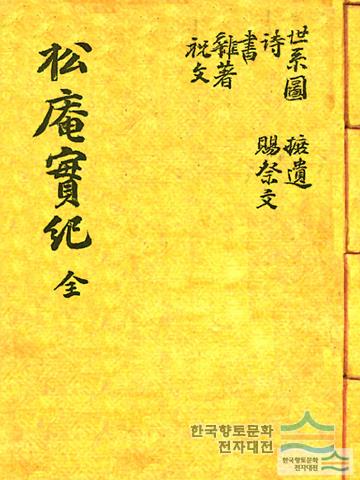 松庵實紀 全
世系圖
詩
書
雜著
祝文
摭遺
賜祭文
한국향토문화
전자대전
한국향토문화
전자대전